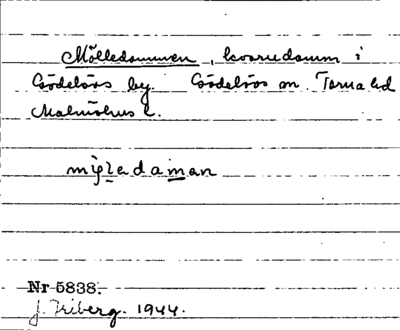 Mölledammen, kvarndamm i
Gödelövs by. Gödelövs sn. Torna hd
Malmöhus l.
Nr 5838.
J. Friberg. 1944.